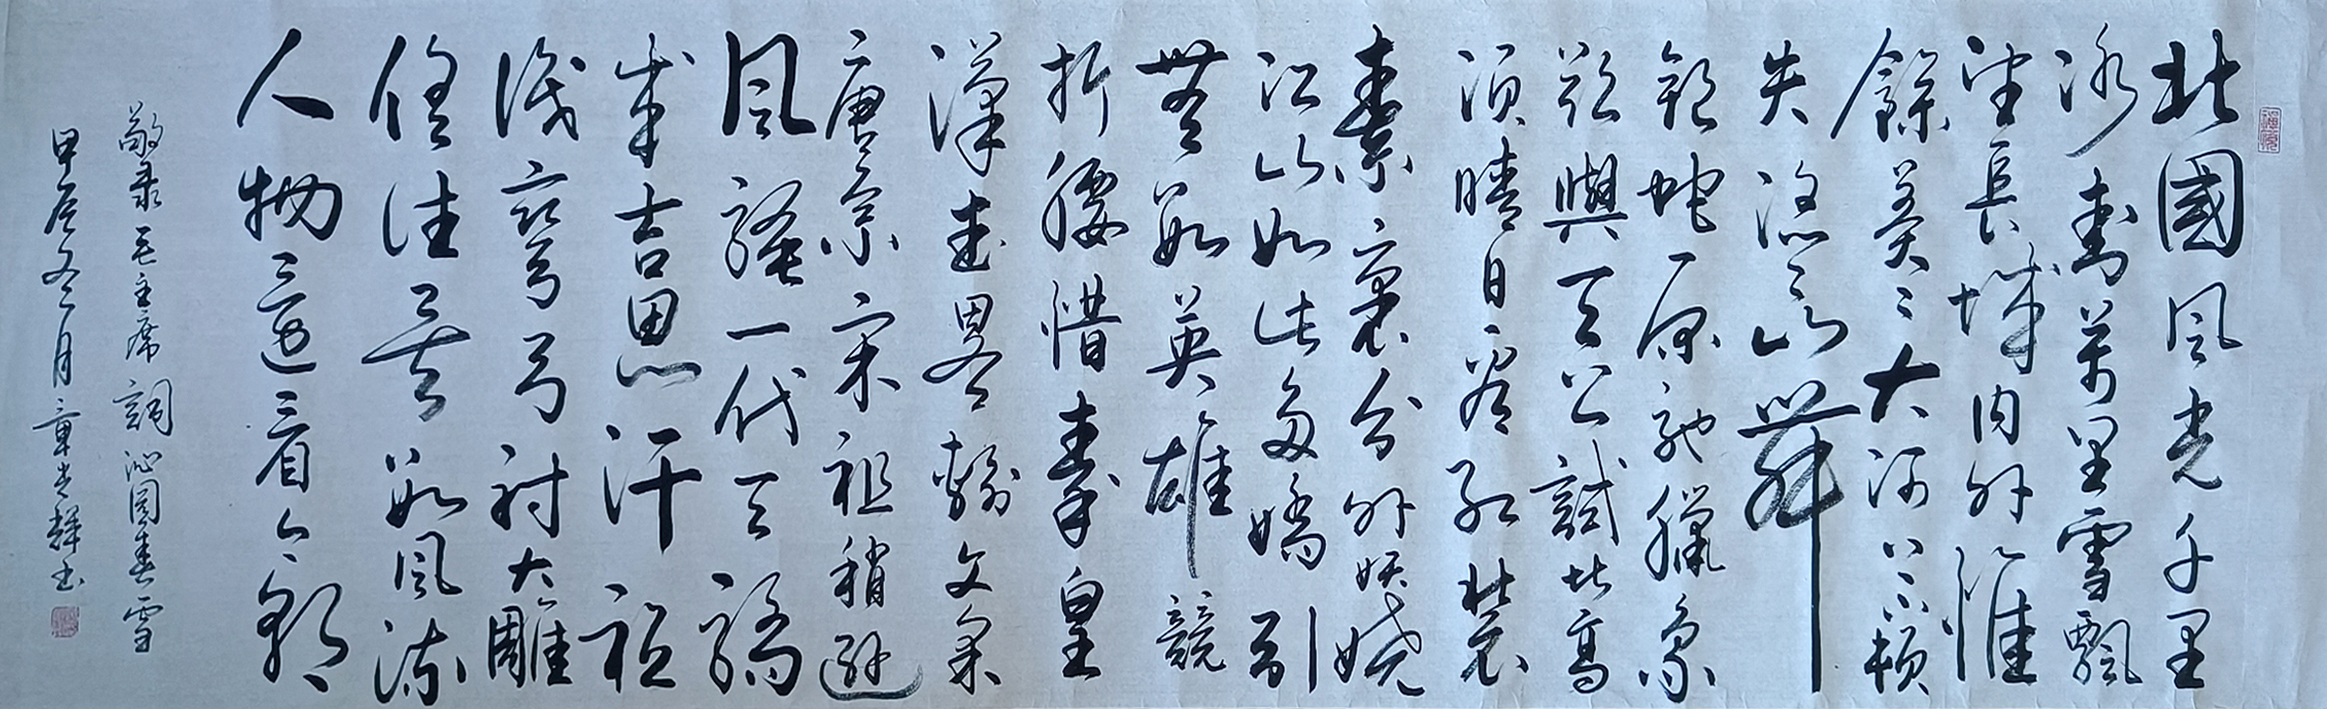 北國風光千里
冰封萬里雪飄
望長城内外惟
餘莽〻大河上下頓
失滔〻山舞
銀蛇原馳臘象
欲與天公試比高
須晴日看紅裝
素裹分外妖嬈
江山如此多嬌引
無數英雄競
折腰惜秦皇
漢武略輸文采
唐宗宋祖稍遜
風騷一代天驕
成吉思汗祗
識彎弓射大雕
俱往矣數風流
人物還看今朝
敬录毛主席詞沁園春雪
甲辰冬月章光輝书